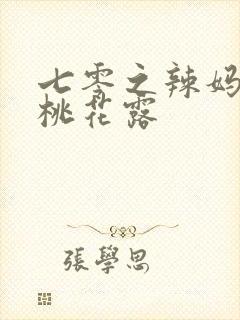 七零之辣妈
桃花露
張學思